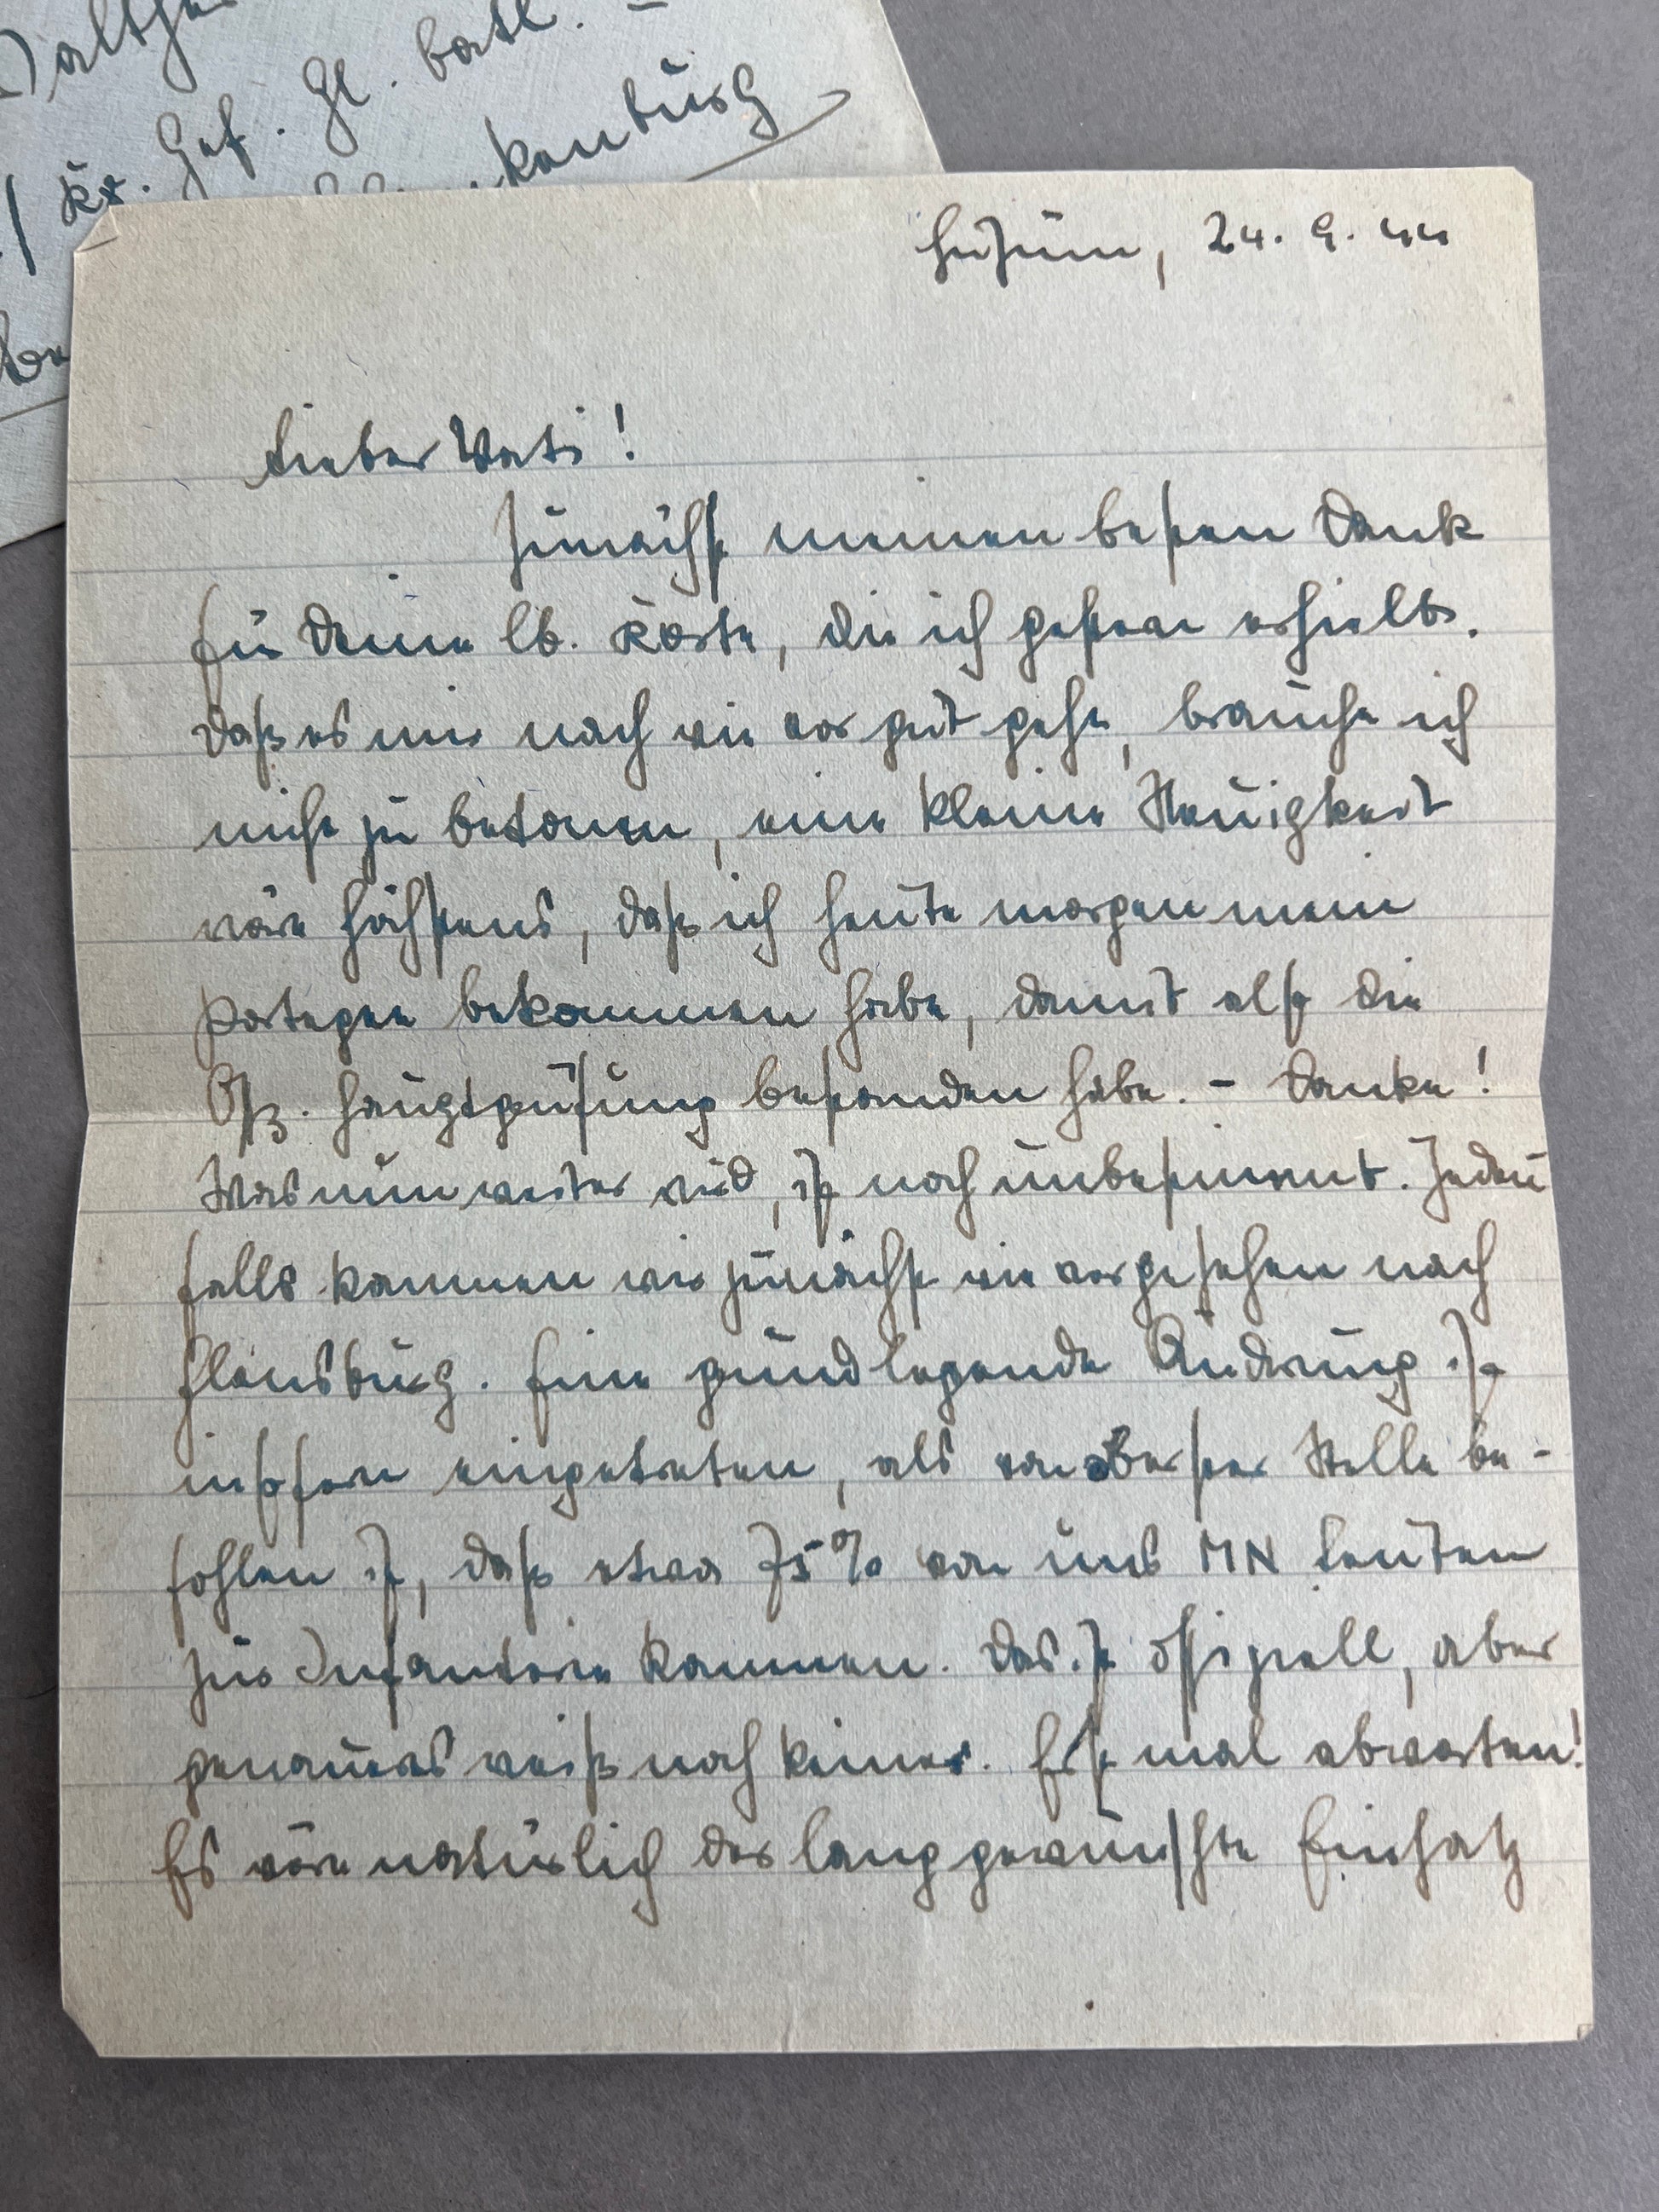 Kr. Gef. Gl. Batl.
Husum, 24. 9. 44
Lieber Vati!
Zunächst meinen besten Dank
für Deine lb. Karte, die ich gestern erhielt.
Daß es mir nach wie vor gut geht, brauche ich
nicht zu betonen, eine kleine Neuigkeit
wäre höchstens, daß ich heute morgen mein
Portepee bekommen habe, damit also die
Offz. Hauptprüfung bestanden habe. – Danke!
Was nun weiter wird, ist noch unbestimmt. Jeden
falls kommen wir zunächst wie vorgesehen nach
Flensburg. Eine grundlegende Änderung ist
insofern eingetreten, als von oberster Stelle be-
fohlen ist, daß etwa 75% von uns MN Leuten
zur Infanterie kommen. Das ist offiziell, aber
genaueres weiß noch keiner. Erst mal abwarten!
Es wäre natürlich der lang gewünschte Einsatz